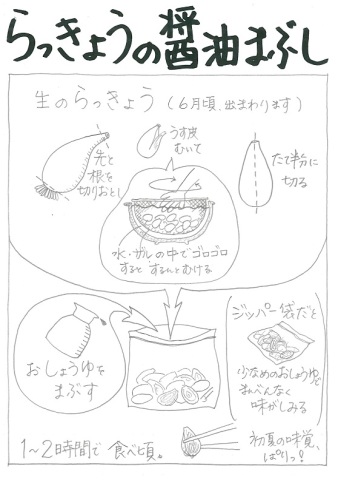 らっきょうの醤油まぶし
生のらっきょう(6月頃、出まわります)
先と
根を
切りおとし
うす皮
むいて
たて半分に
切る
水・ザルの中でゴロゴロ
すると するんとむける
おしょうゆを
まぶす
ジッパー袋だと
少なめのおしょうゆで
まんべんなく
味がしみる
1~2時間で 食べ頃。
初夏の味覚、
ぱりっ!